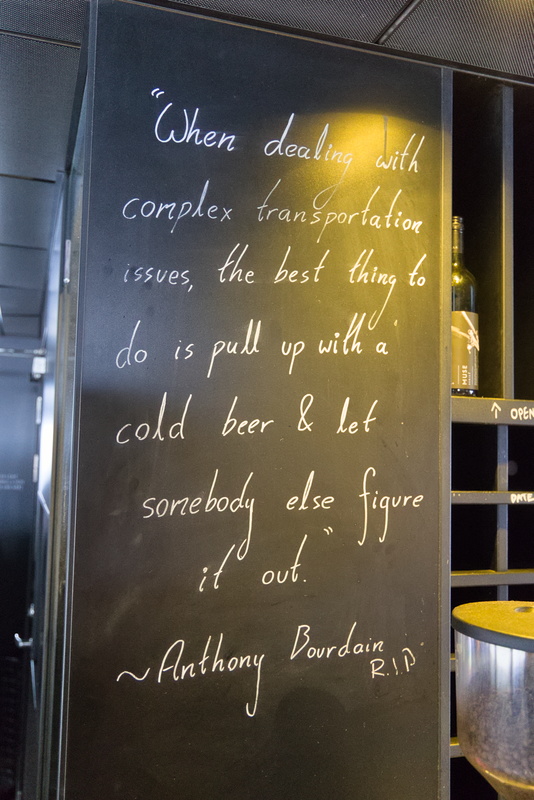 "When dealing with
complex transportation
issues, the best thing to
do is pull up with a
cold beer & let
somebody else figure
it out."
~Anthony Bourdain
R.I.P
MUSE
↑ OPEN
DATE